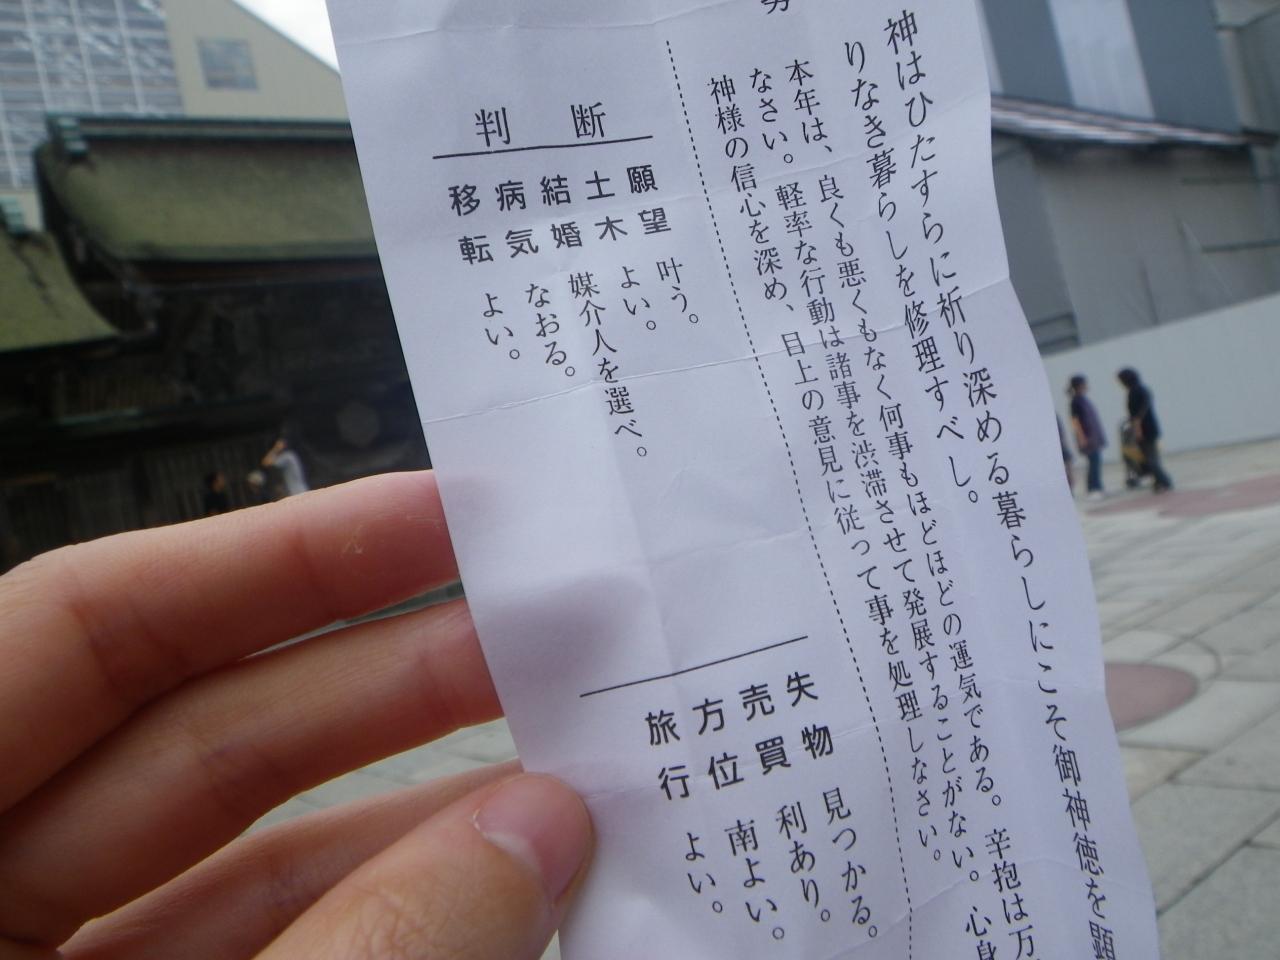 神はひたすらに祈り深める暮らしにこそ御神徳を顕
りなき暮らしを修理すべし。
本年は、良くも悪くもなく何事もほどほどの運気である。辛抱は万
なさい。軽率な行動は諸事を渋滞させて発展することがない。心身
神様の信心を深め、目上の意見に従って事を処理しなさい。
判断
願望 叶う。
土木 よい。
結婚 媒介人を選べ。
病気 なおる。
移転 よい。
失物 見つかる。
売買 利あり。
方位 南よい。
旅行 よい。